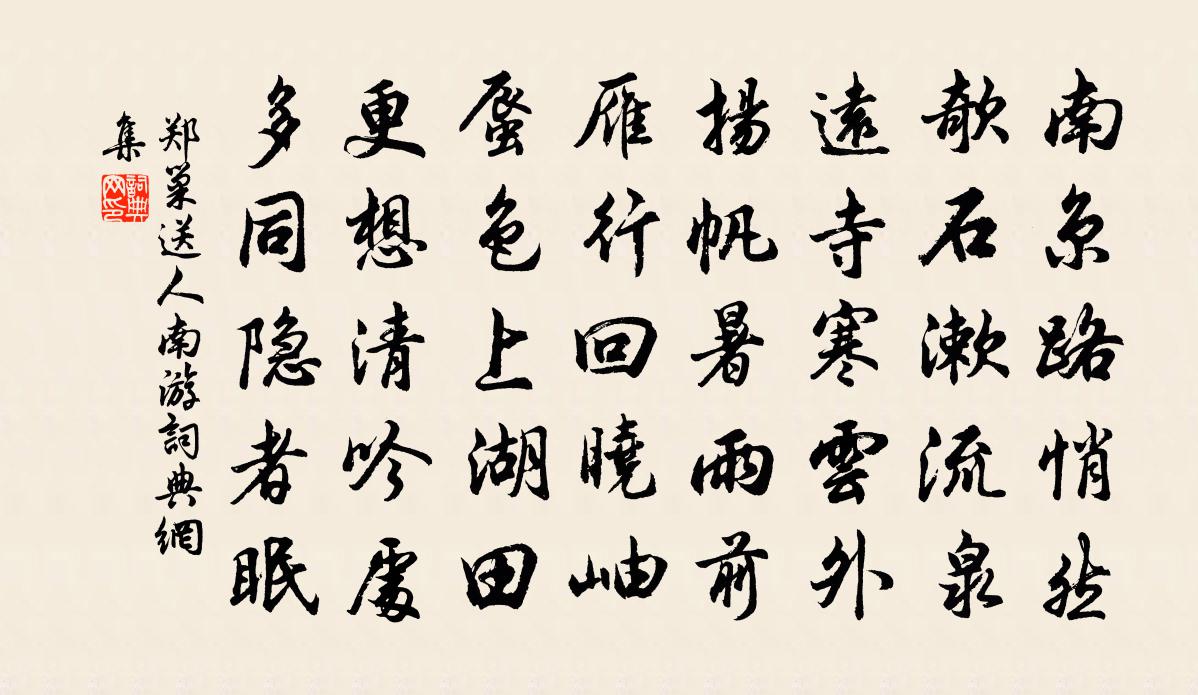 南京路悄然
欹石漱流泉
遠寺寒雲外
揚帆暑雨前
雁行回曉岫
蜃色上湖田
更想清吟處
多同隐者眠
郑巢送人南游詞典網
集
詞典
网印